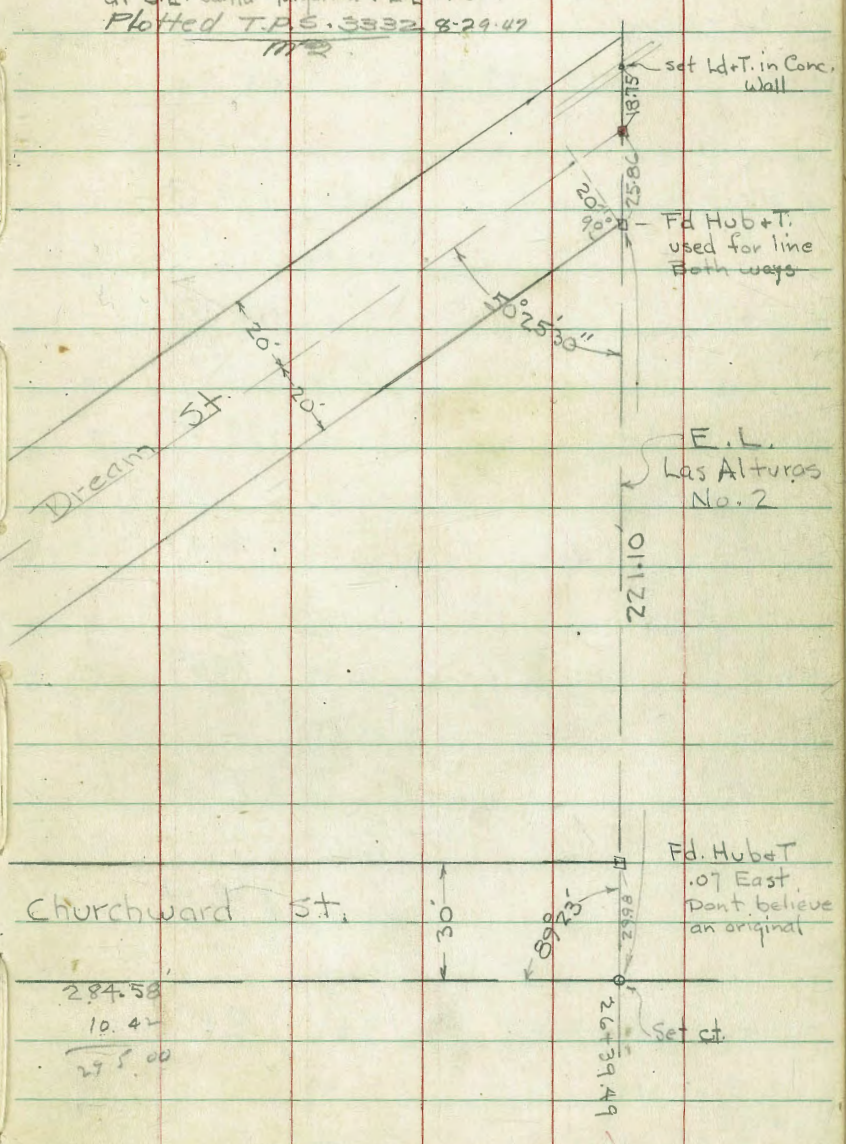 Plotted T.P.S. 3332 8-29-47
set Ld+T. in Conc.
Wall
18.75
25.86
20'
90°
Fd Hub+T.
used for line
Both ways
50° 25' 30"
20'
20'
Dream St.
E.L.
Las Alturas
No. 2
221.10'
Fd. Hub+T
.07 East
Dont believe
an original
Churchward St.
30'
89° 23'
29.98
284.58'
10.42
295.00
Set ct.
26+39.49